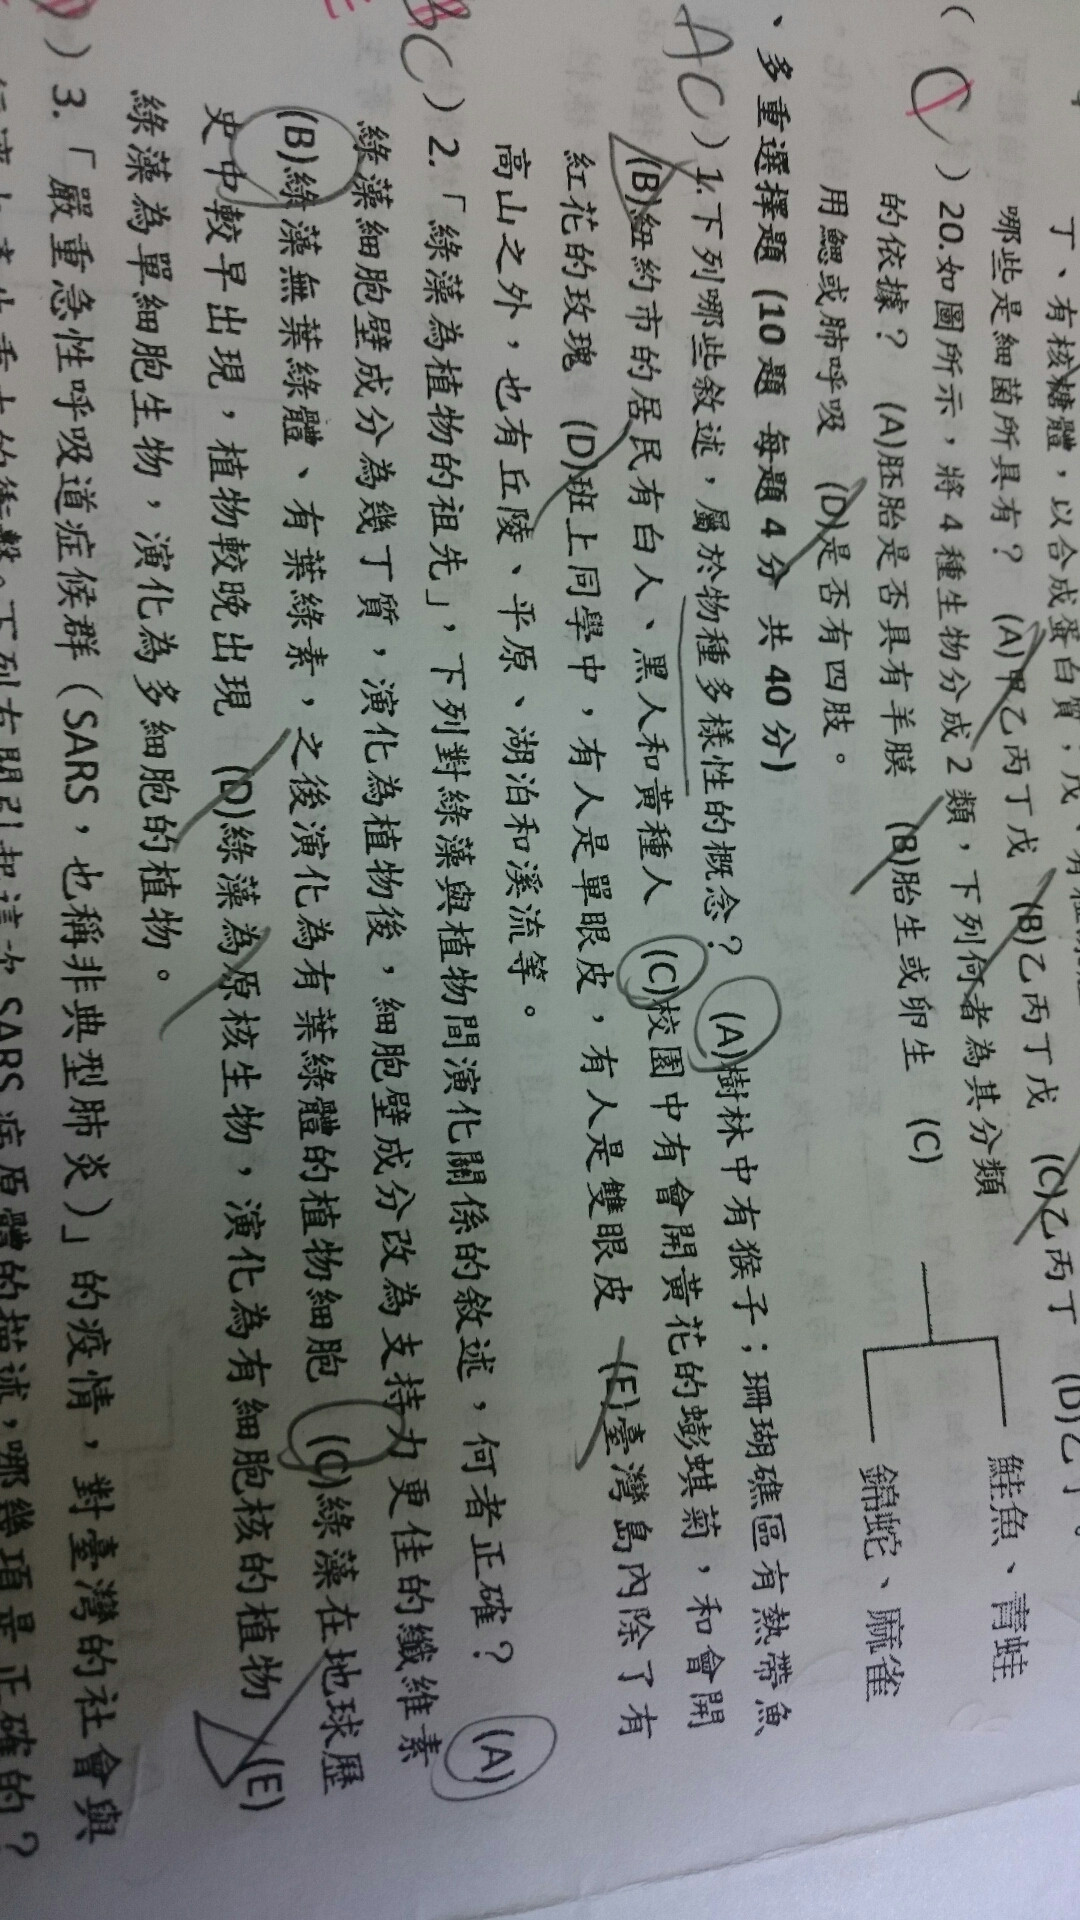 丁、有核糖體，以合成蛋白質；戊、有
哪些是細菌所具有？ (A)甲乙丙丁戊 (B)乙丙丁戊 (C)乙丙丁 (D)乙丁。
(C) 20.如圖所示，將4種生物分成2類，下列何者為其分類
的依據？ (A)胚胎是否具有羊膜 (B)胎生或卵生 (C)
用鰓或肺呼吸 (D)是否有四肢。
鮭魚、青蛙
錦蛇、麻雀
、多重選擇題 (10題 每題4分 共40分)
(AC) 1.下列哪些敘述，屬於物種多樣性的概念？ (A)樹林中有猴子；珊瑚礁區有熱帶魚
(B)紐約市的居民有白人、黑人和黃種人 (C)校園中有會開黃花的蟛蜞菊，和會開
紅花的玫瑰 (D)班上同學中，有人是單眼皮，有人是雙眼皮 (E)臺灣島內除了有
高山之外，也有丘陵、平原、湖泊和溪流等。
BC) 2.「綠藻為植物的祖先」，下列對綠藻與植物間演化關係的敘述，何者正確？ (A)
綠藻細胞壁成分為幾丁質，演化為植物後，細胞壁成分改為支持力更佳的纖維素
(B)綠藻無葉綠體、有葉綠素，之後演化為有葉綠體的植物細胞 (C)綠藻在地球歷
史中較早出現，植物較晚出現 (D)綠藻為原核生物，演化為有細胞核的植物 (E)
綠藻為單細胞生物，演化為多細胞的植物。
) 3.「嚴重急性呼吸道症候群（SARS，也稱非典型肺炎）」的疫情，對臺灣的社會與
下列有關引起這次SARS病原體的描述，哪幾項是正確的？